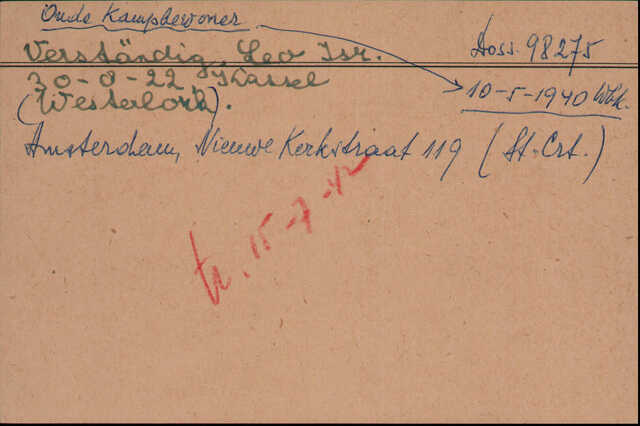 Oude Kampbewoner
Verständig, Leo Isr. Doss. 98275
30-8-22, Kassel
(Westerbork). 10-5-1940 Wbk.
Amsterdam, Nieuwe Kerkstraat 119 (St. Crt.)
tr. 15-7-42